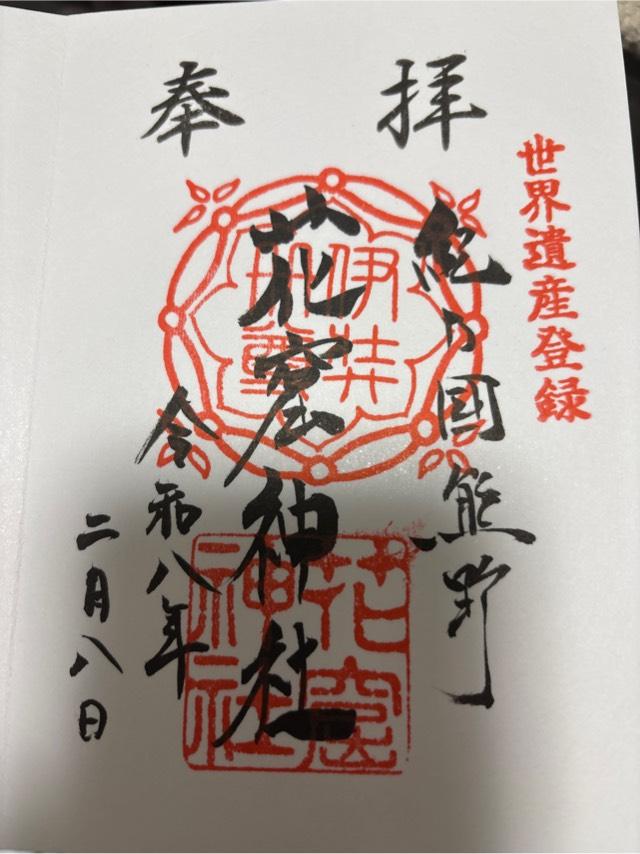 奉拝
世界遺産登録
紀乃國熊野
花窟神社
令和八年
二月八日
伊弉
冊尊
花窟
神社